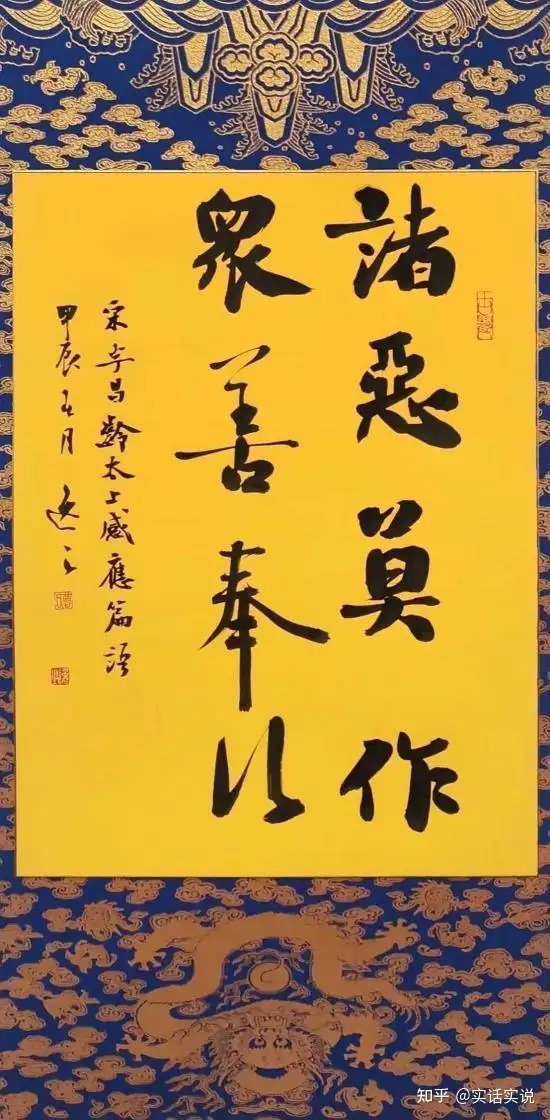 諸惡莫作
眾善奉行
宋李昌齡太上感應篇語
甲辰五月
知乎 @实话实说